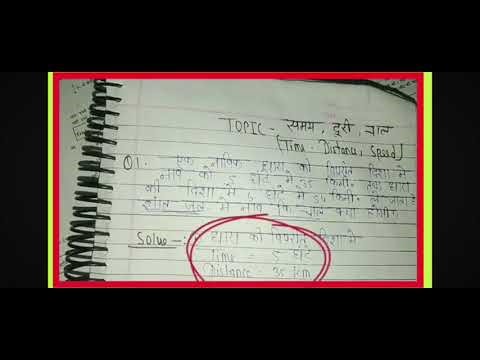 TOPIC - समय, दूरी, चाल
(Time. Distance, Speed)
Q1. एक नाविक धारा की विपरीत दिशा में
नाव को 5 घंटे में 35 किमी. तथा धारा
की दिशा में 6 घंटे में 54 किमी. ले जाता है
शांत जल में नाव कि चाल क्या होगी।
Solve -: धारा की विपरीत दिशा में
Time = 5 घंटे
Distance = 35 km